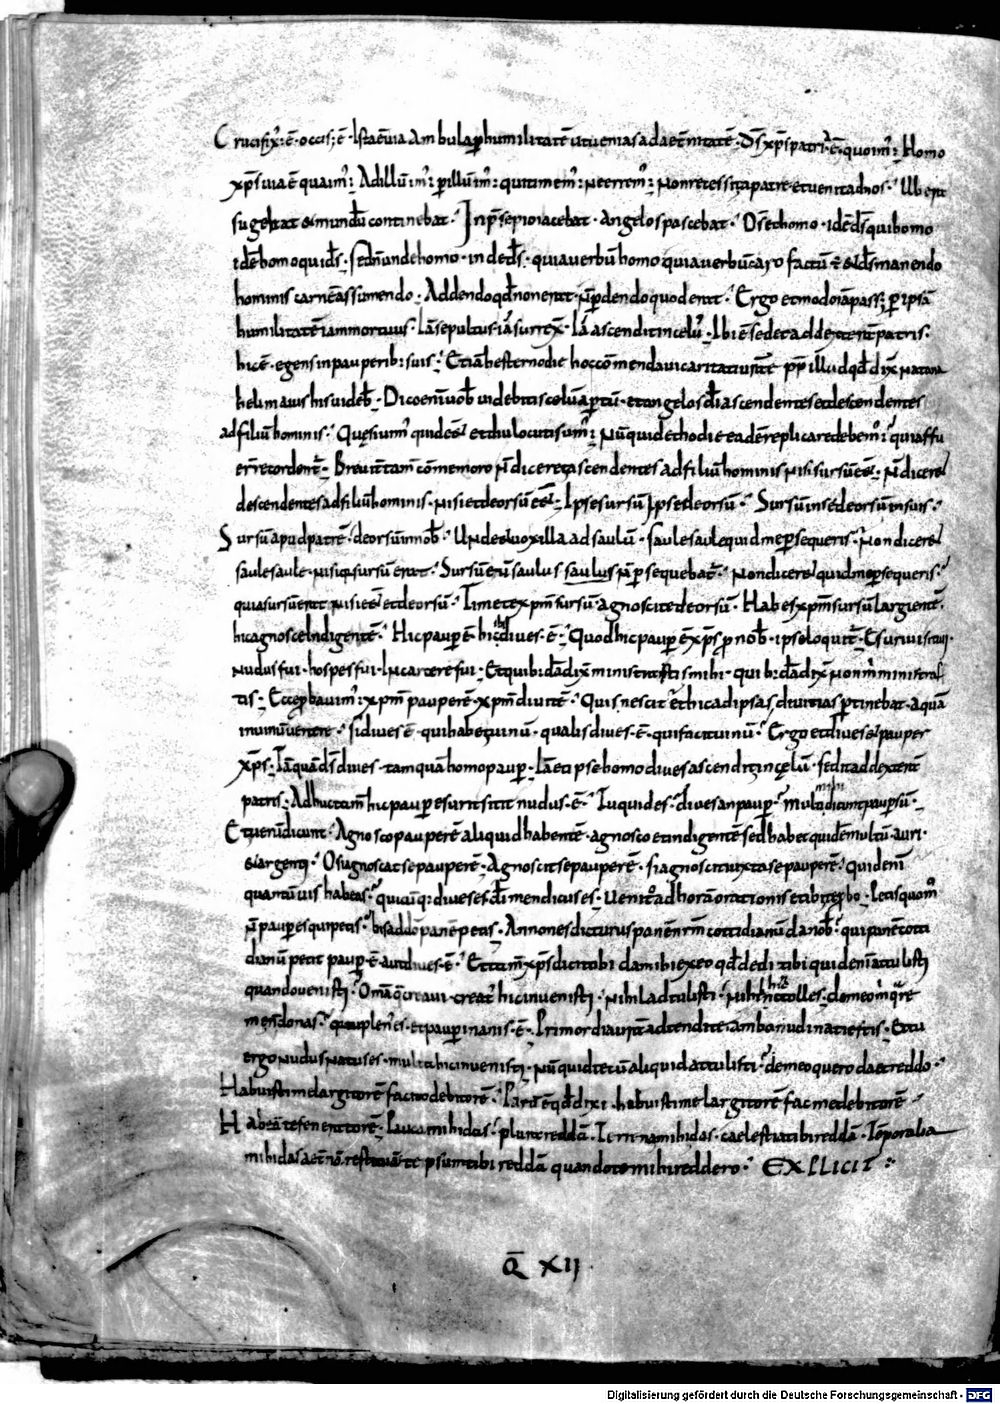 Crucifix; ē · occis; ē · Ista ē uia Ambula ꝑ humilitatē ut uenias ad aet̄nitatē · Dš xp̄s patria ē · quo im᷒ : Homo
xp̄s uia ē qua im᷒ : Ad illū im᷒ : ꝑ illū im᷒ : quid timem᷒ : ne errem᷒ : Non recessit a patre et uenit ad nos · Ubera
sugebat & mundū continebat · In p̄sepio iacebat · angelos pascebat · Dš et homo · idē dš qui homo
idē homo qui dš · Sed n̄ unde homo · inde dš · quia uerbū homo quia uerbū caro factū ē & dš manendo
hominis carnē assumendo · Addendo qđ non erat · n̄ ꝑdendo quod erat · Ergo et modo iā pass; ꝑ ipsā
humilitatē iam mortuus · Iā sepultus · iā surrex̄ · Iā ascendit in celū · Ibi ē sedet ad dexterā patris ·
hic ē · egens in pauperib: suis · Etiā hesterno die hoc cōmendaui caritati ur̄ae pp̄ illud qđ dix̄ natana
heli maius his uideb̄ · Dico enī uob̄ uidebitis celū aꝑtū · et angelos dī ascendentes et descendentes
ad filiū hominis · Quęsium᷒ quid eēt et diu locuti sum᷒ : Nūquid et hodie eadē replicare debem᷒ · qui affu
er̄ recordent᷒ · Breuit᷒ tam̄ cōmemoro n̄ diceret ascendentes ad filiū hominis nisi sursū eēt · n̄ diceret
descendentes ad filiū hominis · nisi et deorsū eēt · Ipse sursū Ipse deorsū · Sursū in se deorsū in suis ·
Sursū apud patrē · deorsū in nob̄ · Unde & uox illa ad saulū · saule saule quid me ꝑsequeris · Non diceret
saule saule · nisi q sursū erat · Sursū enī saulus saulus n̄ ꝑsequebat᷒ · Non diceret quid me ꝑsequeris ·
quia sursū erat nisi eēt et deorsū · Timete xp̄m sursū agnoscite deorsū · Habes xp̄m sursū largientē ·
hic agnosce Indigentē · Hic pauꝑ ē hic diues · ē · Quod hic pauꝑ ē xp̄s ꝓ nob̄ · ipse loquit᷒ · Esuriui
Nudus fui · hospes fui · In carcere fui · Et quib: dā dix̄ ministrastis mihi · quib: dā dix̄ non m̄ ministras
tis · Ecce ꝓbauim᷒ : xp̄m pauperē · xp̄m diuitē · Quis nescit et hic ad ipsas diuitias ꝑtinebat · aquā
in uinū uertere · si diues ē · qui habet uinū · qualis diues · ē · qui facit uinū · Ergo et diues & pauper
xp̄s · Tāquā dš diues · tamquā homo pauꝑ · Iā et ipse homo diues ascendit in cęlū · sedit ad dexterā
patris · Adhuc tam̄ hic pauꝑ esurit sitit nudus · ē · Tu quid es · diues an pauꝑ · multi mihi dicunt pauꝑ sū ·
Et uerū dicunt · Agnosco pauperē aliquid habentē · agnosco et indigentē Sed habet quidē multū · auri ·
& argenti · O si agnoscat se pauperē · Agnoscit se pauperē · si agnoscit iuxta se pauperē · Quid enī
quantūuis habeas · quicūq: diues es dī mendicus es · Uenit᷒ ad horā orationis et ibi te ꝓbo · Petis quom°
n̄ pauꝑ es qui petis · his addo panē petis · An non es dicturus panē nr̄m cottidianū da nob̄ · qui panē cotti
dianū petit pauꝑ · ē · aut diues · ē · Et tam̄ xp̄s dicit tibi da mihi ex eo qđ dedi tibi quid enī attulisti
quando uenisti · Om̄a q̄ creaui · creat᷒ hic inuenisti · Nihil adtulisti · Nihil hinc tolles · de meo m̄ quare
mendonas · quia plen᷒ es · et pauꝑ inanis · ē · Primordia ur̄a adtendite · ambo nudi nati estis · Et tu
ergo nudus natus es · multa hic inuenisti · Nūquid tecū aliquid attulisti · de meo quero da et reddo ·
Habuisti me largitorē fac cito debitorē · Parū ē qđ dixi · habuisti me largitorē fac me debitorē
Habeā te feneratorē · Pauca mihi das · plura reddā · Terrena mihi das · caelestia tibi reddā · Tēporalia
mihi das aet̄na restituā · te ipsum tibi reddā quando te mihi reddero · EXPLICIT :·
Q̄ XII ·
Digitalisierung gefördert durch die Deutsche Forschungsgemeinschaft - DFG